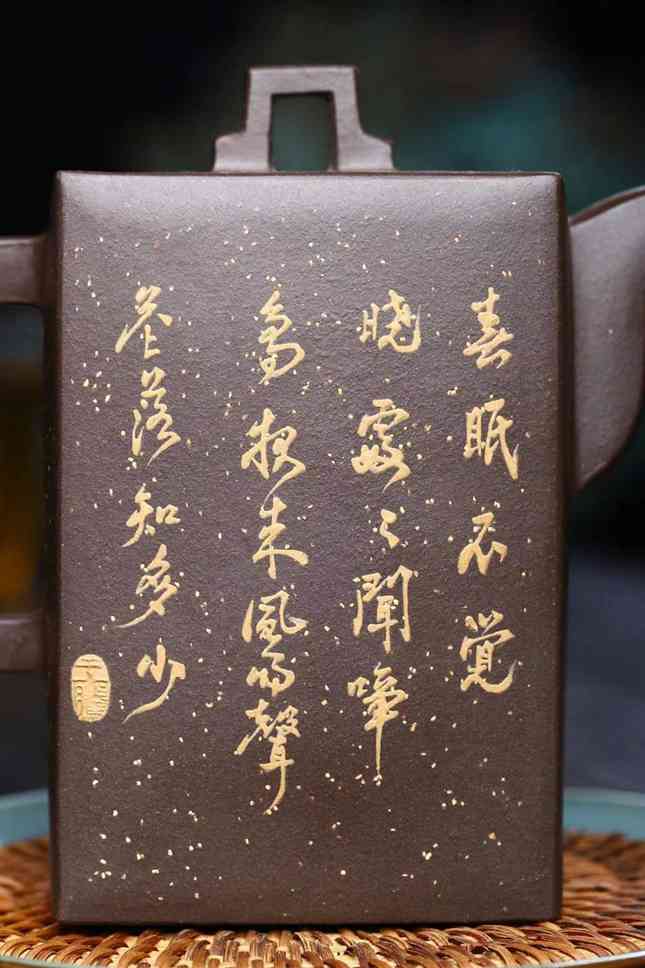 春眠不覺
曉處々聞啼
鳥夜来風雨聲
花落知多少